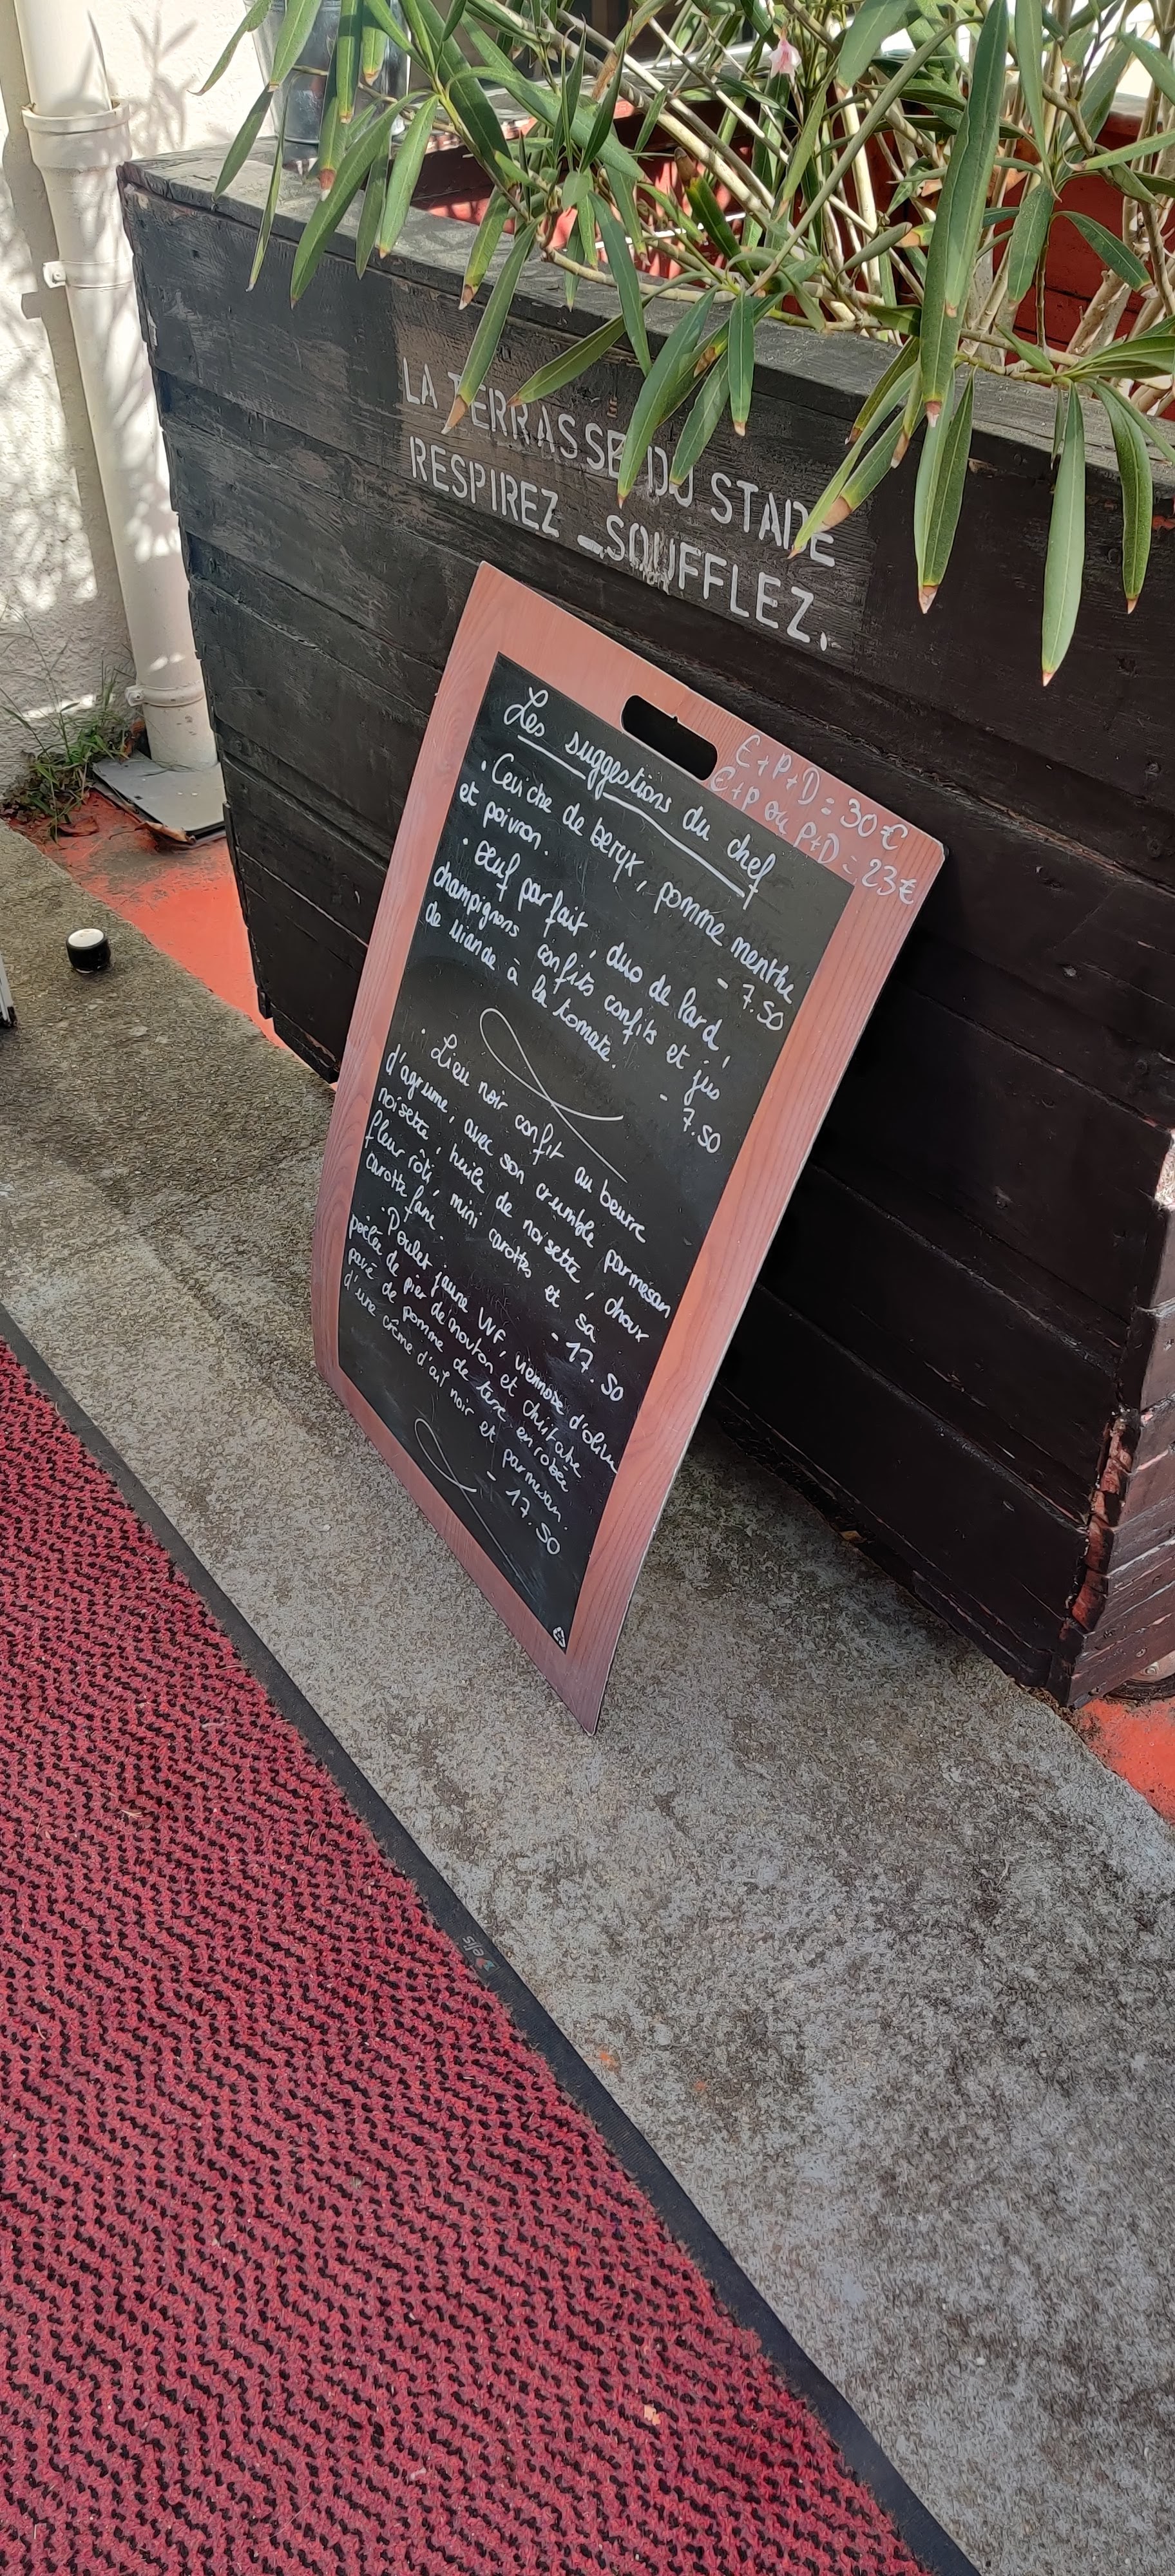 LA TERRASSE DU STADE
RESPIREZ _SOUFFLEZ.
E+P+D = 30€
E+P ou P+D = 23€
Les suggestions du chef
. Ceviche de beryx, pomme menthe
et poivron. - 7.50
. Œuf parfait, duo de lard,
champignons confits confits et jus
de viande à la tomate. - 7.50
. Lieu noir confit au beurre
d'agrume, avec son crumble parmesan
noisette, huile de noisette, choux
fleur rôti, mini carottes et sa
carotte fane. - 17.50
. Poulet jaune VVF, viennoise d'olive
poêlée de pied de mouton et shiitake
pavé de pomme de terre enrobée
d'une crème d'ail noir et parmesan.
- 17.50
elis